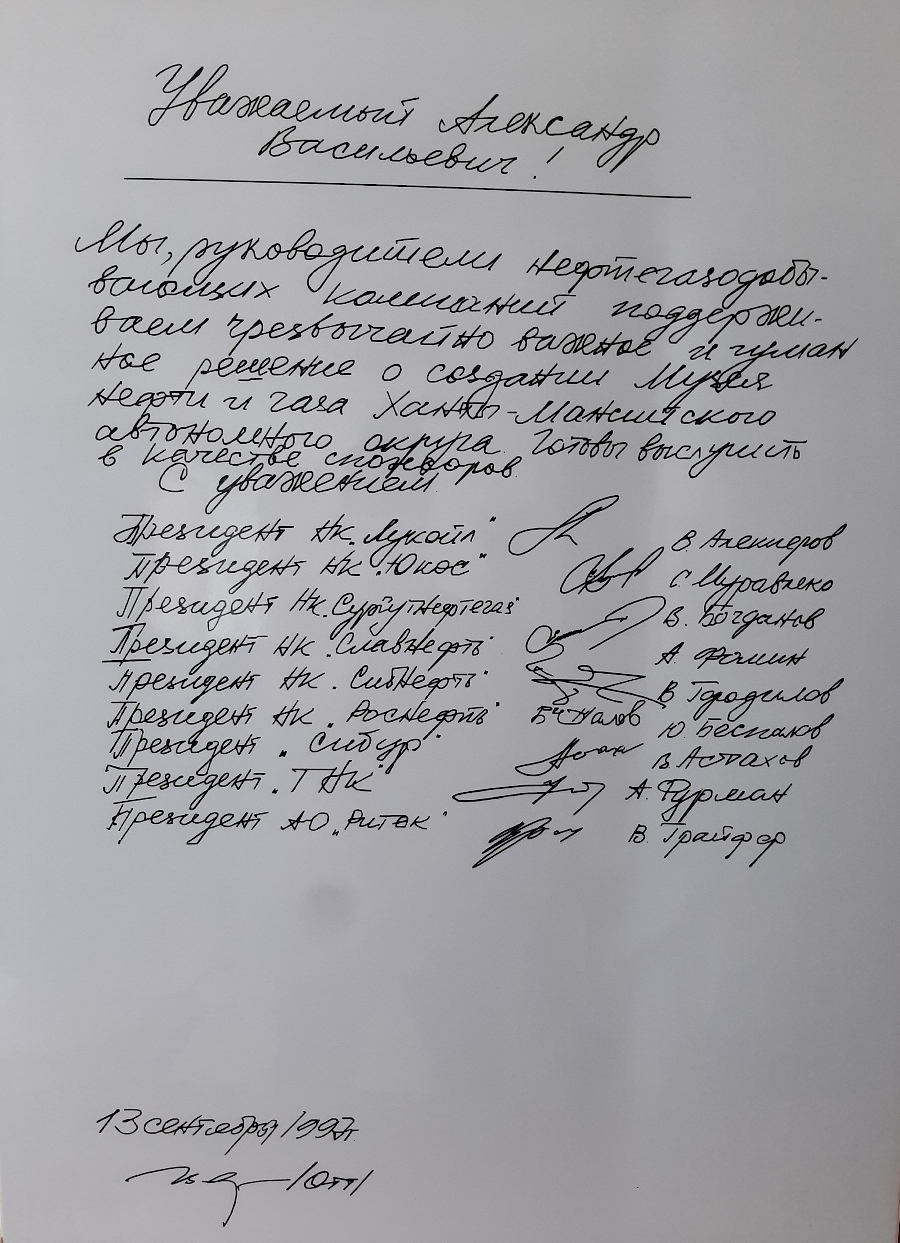 Уважаемый Александр
Васильевич!
Мы, руководители нефтегазодобы-
вающих компаний поддержи-
ваем чрезвычайно важное и гуман
ное решение о создании Музея
нефти и газа Ханты-Мансийского
автономного округа. Готовы выступить
в качестве спонсоров
С уважением.
Президент НК "Лукойл" В. Алекперов
Президент НК "Юкос" С. Муравленко
Президент НК "Сургутнефтегаз" В. Богданов
Президент НК "Славнефть" А. Фомин
Президент НК "Сибнефть" В Городилов
Президент НК "Роснефть" Ю. Беспалов
Президент "Сибур" В. Астахов
Президент "ТНК" А. Фурман
Президент АО "Ритэк" В. Грайфер
13 сентября 1997г.